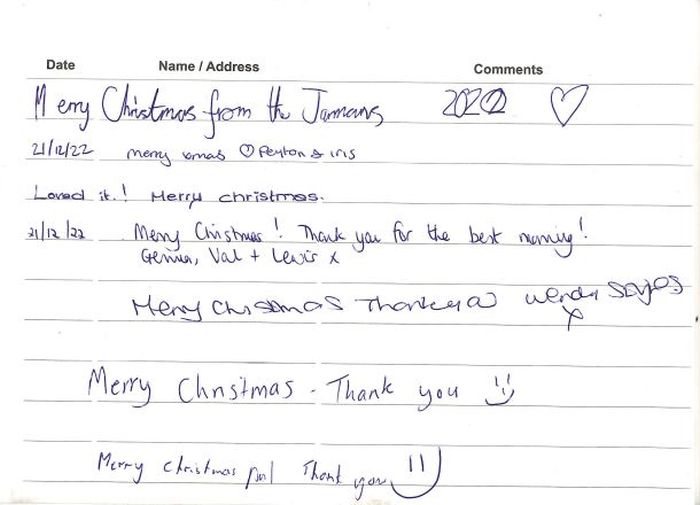 Date Name / Address Comments
Merry Christmas from the Jarmans 2022 ♡
21/12/22 merry xmas ♡ Peyton & iris
Loved it! Merry christmas.
21/12/22 Merry Christmas! Thank you for the best morning!
Gemma, Val + Lewis x
Merry Christmas Thankyou Wendy
x
Merry Christmas - Thank you
Merry Christmas Thank you